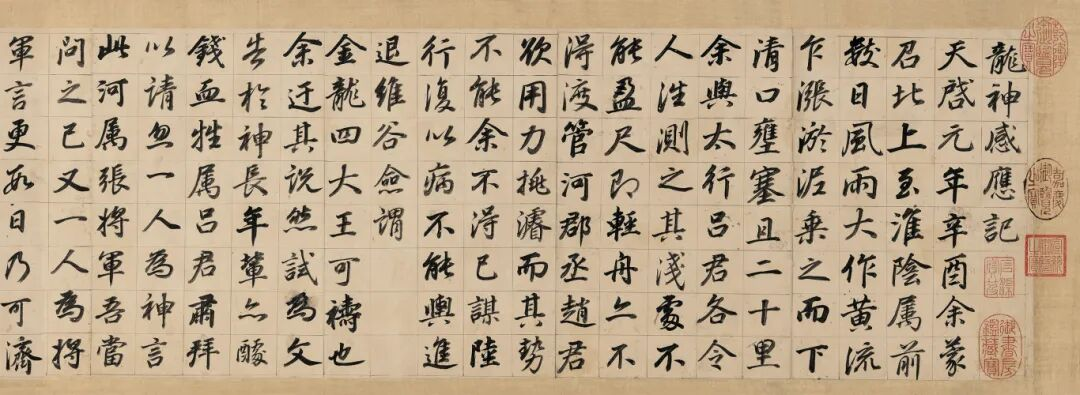 龍神感應記
天啓元年辛酉余蒙
召北上至淮陰属前
數日風雨大作黃流
乍漲淤泥乗之而下
清口壅塞且二十里
余與太行呂君各令
人往測之其淺處不
能盈尺即輕舟亦不
得渡管河郡丞趙君
欲用力挑濬而其勢
不能余不得已謀陸
行復以病不能輿進
退維谷僉謂
金龍四大王可禱也
余迂其説然試為文
告於神長年輩亦醵
錢血牲属呂君肅拜
以請忽一人為神言
此河属張將軍吾當
問之已又一人為將
軍言更數日乃可濟
嘉慶御覽之寶
御書房鑑藏寶